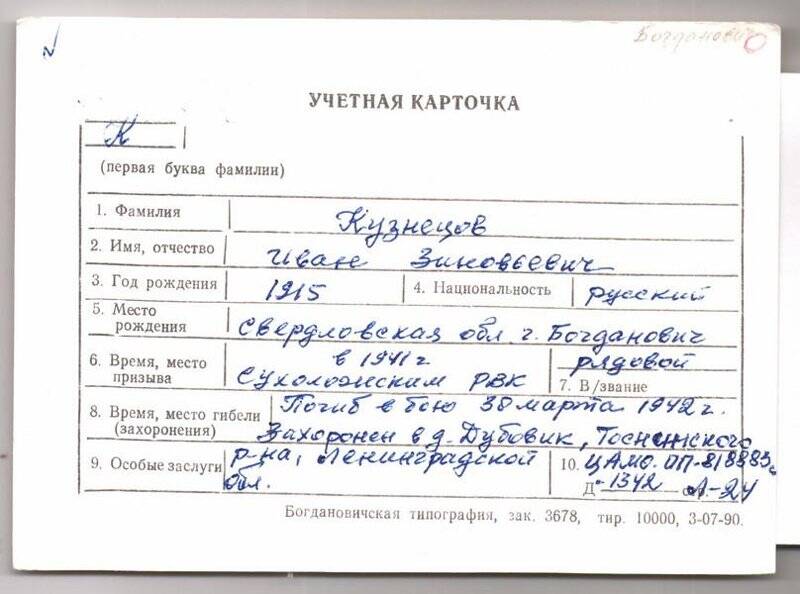 Богданович
УЧЕТНАЯ КАРТОЧКА
К
(первая буква фамилии)
1. Фамилия Кузнецов
2. Имя, отчество Иван Зиновьевич
3. Год рождения 1915 4. Национальность русский
5. Место рождения Свердловская обл. г. Богданович
6. Время, место призыва в 1941 г. Сухоложским РВК
рядовой
7. В/звание
8. Время, место гибели (захоронения) Погиб в бою 30 марта 1942 г.
Захоронен в д. Дубовик, Тосненского
р-на, Ленинградской
обл.
9. Особые заслуги
10. ЦАМО. ОП-818883с
Д-1342 Л-24
Богдановичская типография, зак. 3678, тир. 10000, 3-07-90.